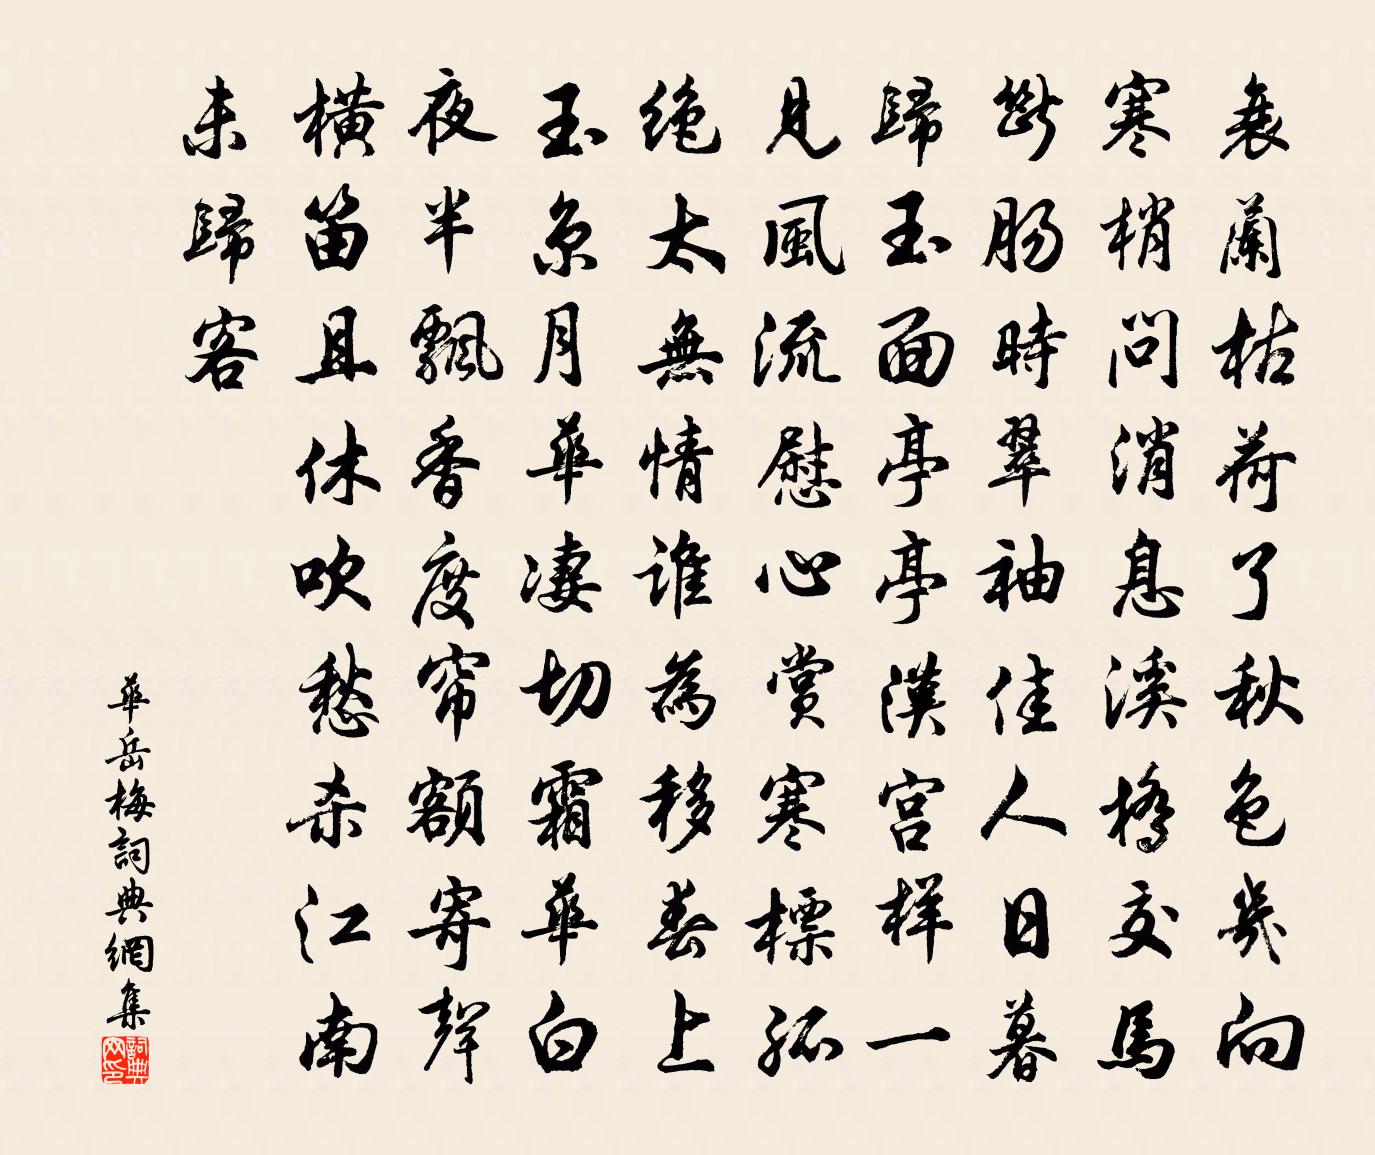 衰蘭枯荷了秋色幾向
寒梢問消息溪橋交馬
斷腸時翠袖佳人日暮
歸玉面亭亭漢宮樣一
見風流慰心賞寒標孤
絶太無情誰為移春上
玉京月華凄切霜華白
夜半飄香度帘額寄聲
橫笛且休吹愁杀江南
未歸客
華岳梅詞典網集
詞典网印